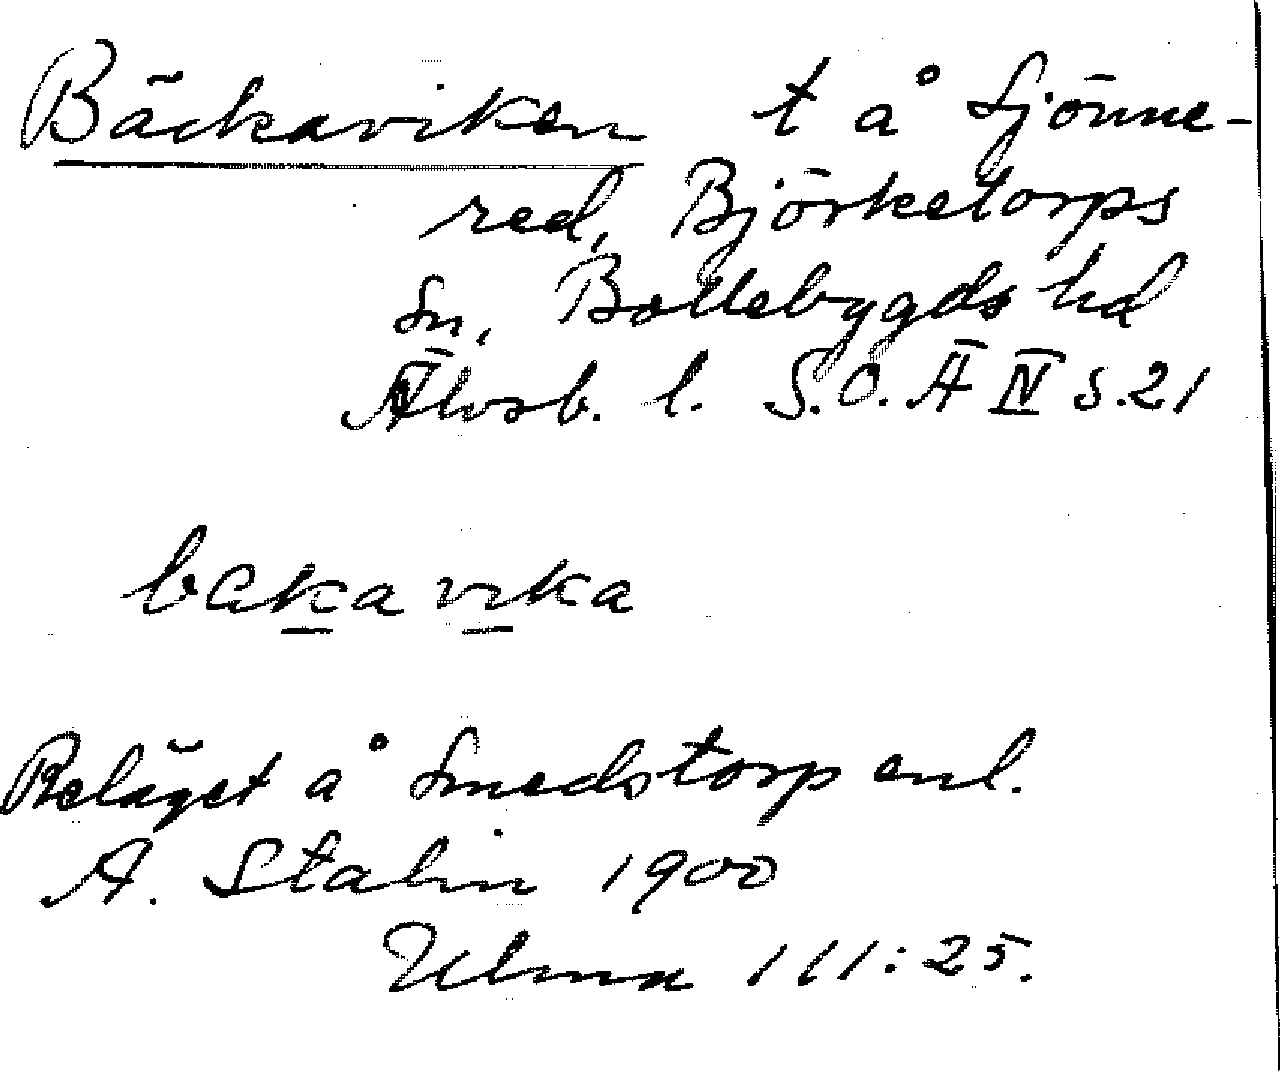 Bäckaviken t å Sjönne-
red, Björketorps
sn, Bollebygds hd
Älvsb. l. S.O.Ä IV S.21
bakavika
Beläget å Smedstorp enl.
A. Stalin 1900
Ulma 111:25.